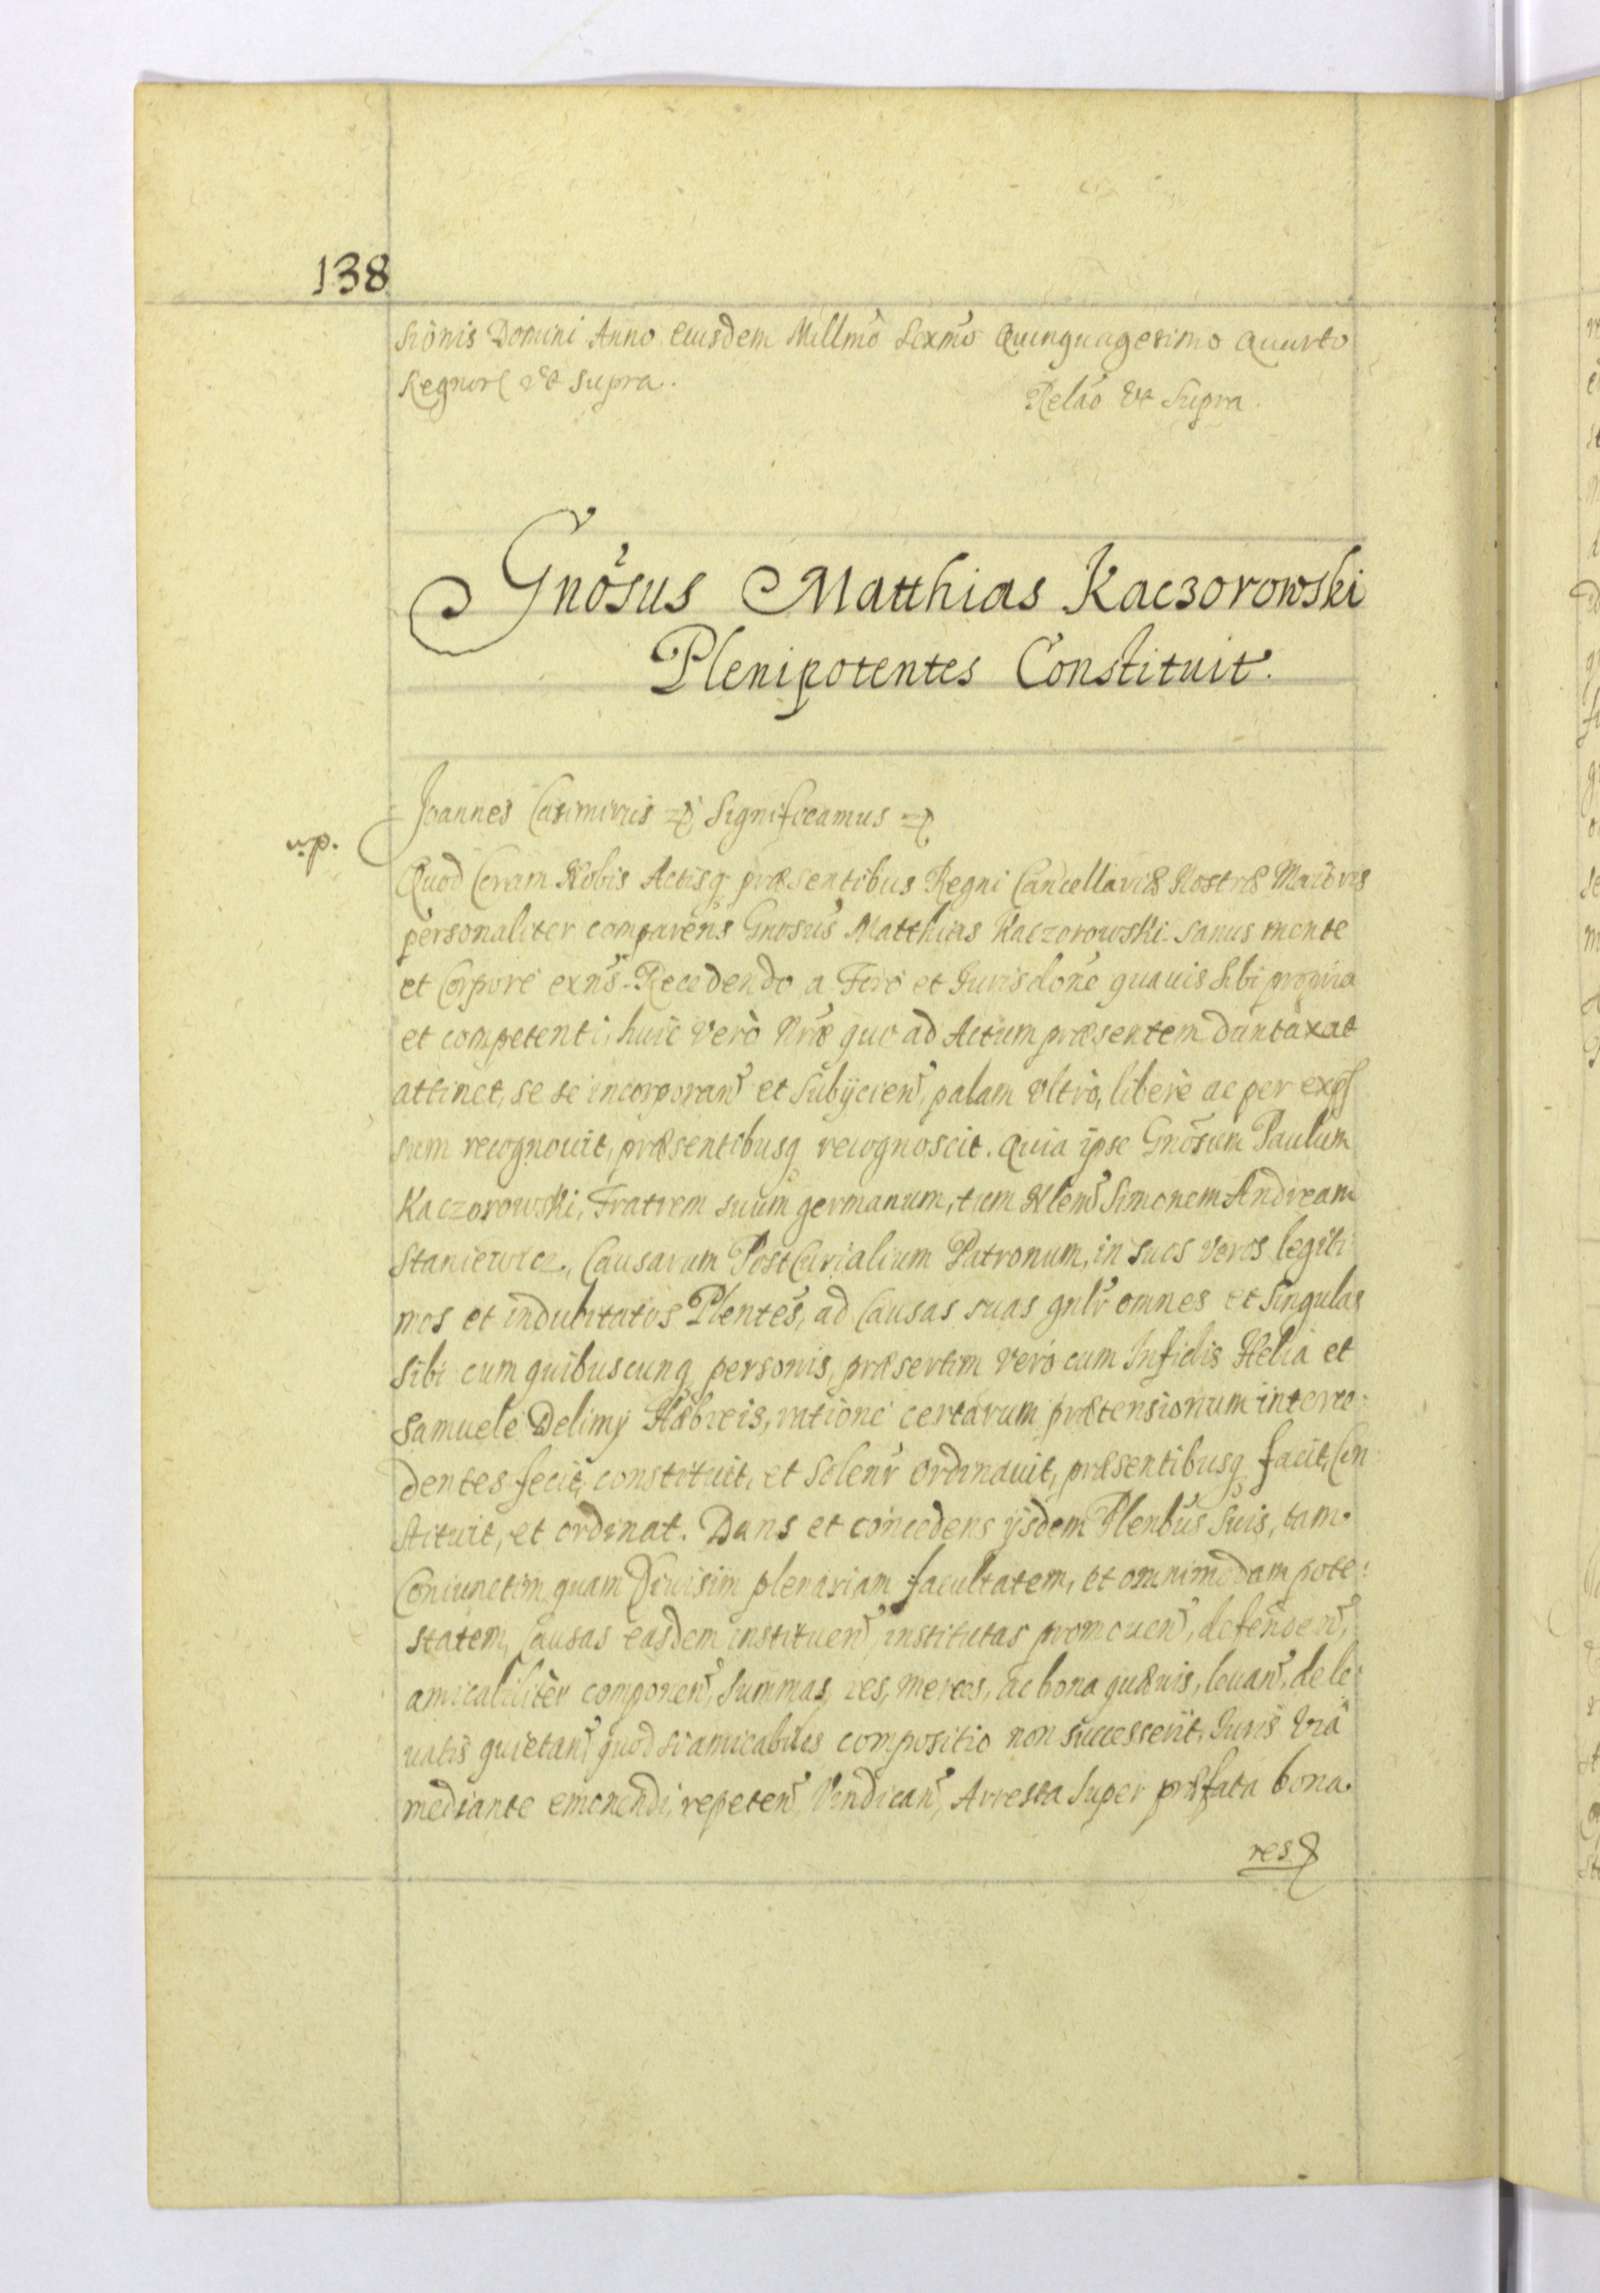 138
sionis Domini Anno eiusdem Millmo Sexmo Quinquagesimo Quarto
Regnor Vt supra.
Relao Vt Supra.
Gnosus Matthias Kaczorowski
Plenipotentes Constituit.
Joannes Casimirus Significamus
Quod Coram Nobis Actisq præsentibus Regni Cancellariæ Nostræ Maioris
personaliter comparens Gnosus Matthias Kaczorowski sanus mente
et Corpore exns. Recedendo a Foro et Jurisdone quavis sibi propria
et competenti, huic verò Nræ quo ad Actum præsentem duntaxat
attinet, se se incorporan et Subÿcien, palam Vltrò, liberè ac per exps
sum recognouit, præsentibusq recognoscit. Quia ipse Gnosum Paulum
Kaczorowski, Fratrem suum germanum, tum Nlem Simonem Andream
Staniewicz, Causarum PostCurialium Patronum, in suos veros legiti
mos et indubitatos Plentes, ad Causas suas gnlr omnes et Singulas
sibi cum quibuscunq personis, præsertim vero cum Infidis Helia et
Samuele Delimÿ Hæbreis, ratione certarum prætensionum interce:
dentes fecit, constituit, et solenr ordinauit, præsentibusq facit, Con
stituit, et ordinat. Dans et concedens ÿsdem Plenbus Suis, tam
Coniunctim quam Diuisim plenariam facultatem, et omnimodam pote:
statem, Causas easdem instituen, institutas promouen, defenden,
amicabiliter componen, Summas, res, merces, ac bona quæuis, leuan, de le:
uatis quietan, quod si amicabilis compositio non successerit, Juris Via
mediante emonendi, repeten, Vendican, Arresta Super præfata bona
res